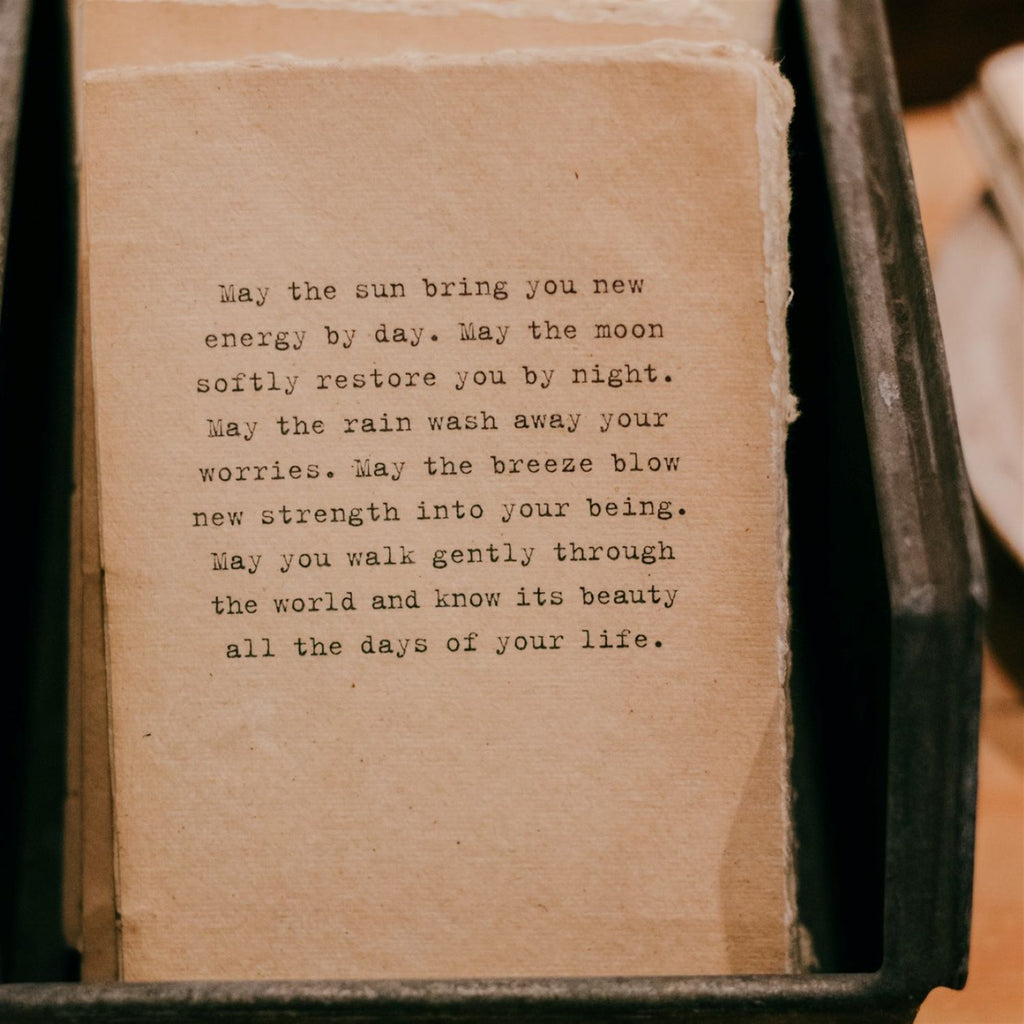 May the sun bring you new
energy by day. May the moon
softly restore you by night.
May the rain wash away your
worries. May the breeze blow
new strength into your being.
May you walk gently through
the world and know its beauty
all the days of your life.